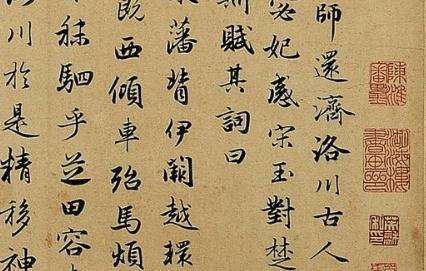 師還濟洛川古人
宓妃感宋玉對楚
斯賦其詞曰
藩背伊闕越轘
既西傾車殆馬煩
秣駟乎芝田容
川於是精移神